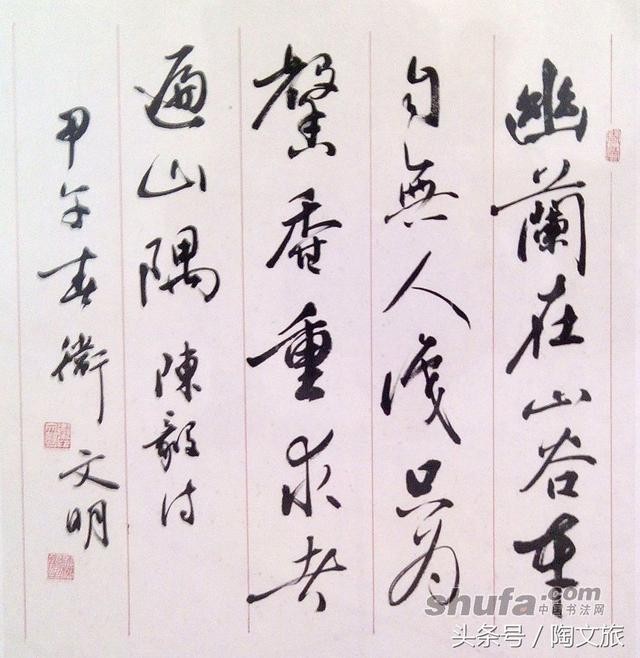 幽蘭在山谷本
自無人識只為
馨香重求者
遍山隅 陳毅诗
甲午春衛文明
shufa.com
中国书法网
头条号 / 陶文旅